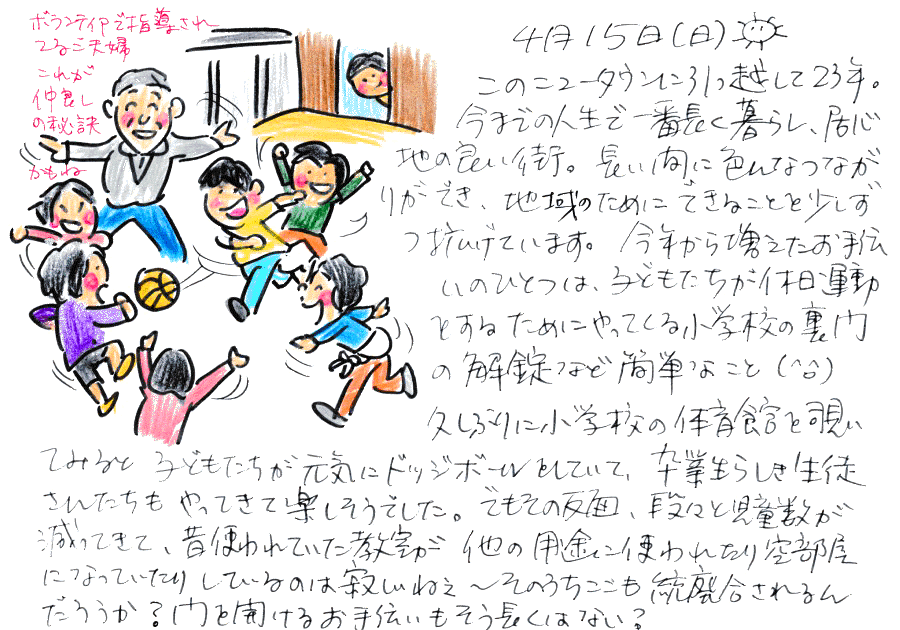 ボランティアで指導され
てるご夫婦
これが
仲良し
の秘訣
かもね
4月15日(日)
このニュータウンに引っ越して23年。
今までの人生で一番長く暮らし、居心
地の良い街。長い間に色んなつなが
りができ、地域のためにできることを少しず
つ拡げています。今年から増えたお手伝
いのひとつは、子どもたちが休日運動
をするためにやってくる小学校の裏門
の解錠など簡単なこと(^o^)
久しぶりに小学校の体育館を覗い
てみると子どもたちが元気にドッジボールをしていて、卒業生らしき生徒
さんたちもやってきて楽しそうでした。でもその反面、段々と児童数が
減ってきて、昔使われていた教室が他の用途に使われたり空部屋
になっていたりしているのは寂しいねぇ〜そのうちここも統廃合されるん
だろうか?門を開けるお手伝いもそう長くはない?